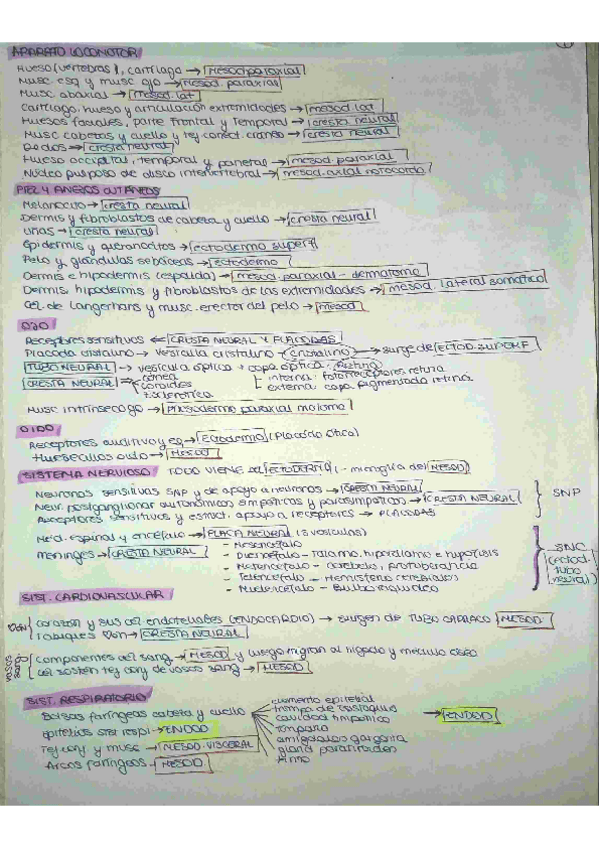 APARATO LOCOMOTOR
Hueso (vertebras), cartílago → Mesod. paraxial
Musc. esq y musc. ojo → mesod. paraxial
Musc abaxial → mesod. lat
Cartílago, hueso y articulación extremidades → mesod. lat
Huesos faciales, parte frontal y temporal → cresta neural
Musc cabeza y cuello y tej conect. craneo → cresta neural
→ cresta neural
Hueso occipital, temporal y parietal → mesod. paraxial
Nucleo pulposo de disco intervertebral → mesod. axial notocorda
PIEL Y ANEXOS CUTANEOS
Melanocito → cresta neural
Dermis y fibroblastos de cabeza y cuello → cresta neural
Uñas → cresta neural
Epidermis y queranocitos → ectodermo superf
Pelo y glándulas sebáceas → ectodermo
Dermis e hipodermis (espalda) → mesod. paraxial - dermatomo
Dermis, hipodermis y fibroblastos de las extremidades → mesod. lateral somatico
Cel. de Langerhans y musc. erector del pelo → mesod
OJO
Receptores sensitivos ← CRESTA NEURAL Y PLACODAS
Placoda cristalino → Vesicula cristalino → cristalino → surge de ECTOD. SUPERF
TUBO NEURAL → vesícula óptica → copa óptica: Retina
CRESTA NEURAL → córnea interna: fotorreceptores retina
coroides externa: capa pigmentada retina
esclerótica
Musc intrínseco → mesodermo paraxial
OIDO
Receptores auditivo y eq → Ectodermo (Placoda ótica)
Huesecillos oido → MESOD
SISTEMA NERVIOSO TODO VIENE del ECTODERMO (- microglia del MESOD)
Neuronas sensitivas SNP y de apoyo a neuronas → CRESTA NEURAL
Neur. postganglionar autonómicas simpaticas y parasimpaticas → CRESTA NEURAL SNP
Receptores sensitivos y estruct. apoyo a receptores → PLACODAS
Med. espinal y encéfalo → PLACA NEURAL (5 vesículas)
meninges → CRESTA NEURAL - Mesencéfalo
- Diencéfalo - Tálamo, hipotálamo e hipófisis
- Metencéfalo - cerebelo, protuberancia
- Telencéfalo - Hemisferio cerebrales
- Mielencéfalo - Bulbo raquídeo
SNC (ectod. tubo neural)
SIST. CARDIOVASCULAR
Corazon y sus cel endoteliales (ENDOCARDIO) → surgen de TUBO CARDIACO MESOD
Tabiques → CRESTA NEURAL
vasos sang
Componentes del sang → MESOD y luego migran al higado y medula osea
cel sosten tej conj de vasos sang → MESOD
SIST. RESPIRATORIO
Bolsas faríngeas cabeza y cuello → ENDOD
epitelial
trompa de eustaquio
cavidad timpanica
timpano
amigdalas garganta
gland paratiroides
timo
epitelios sist respi → ENDOD
Tej conj y musc → MESOD. VISCERAL
Arcos faríngeos → MESOD